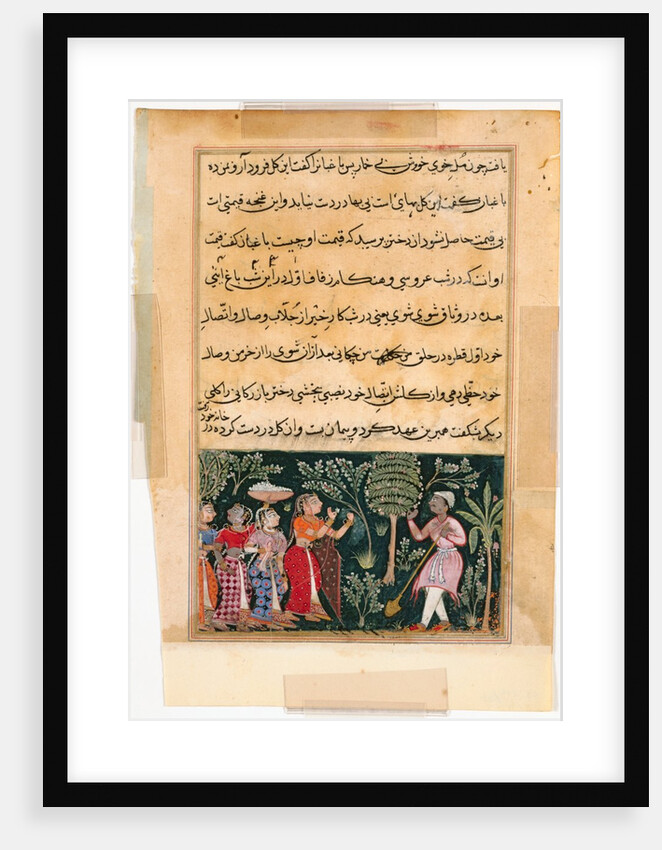 یافت چون مل خوی خویش بی خمار پس باغبانرا گفت این گل فرود آر و بمن ده
باغبان گفت این گل بهای است بی بها در دست نیاید و این غنچه قیمتی است
بی قیمت حاصل نشود از دختر پرسید که قیمت او چیست باغبان گفت قیمت
او آنست که در شب عروسی و هنگام زفاف اول در این شب باغ آیی
بعده در وثاق شوی شوی یعنی در شب کار خیر از جلاب وصال و اتصال
خود اول قطره در حلق من چکانی بعد از آن شوی را از خرمن وصال
خود حظی دهی و از کاس اتصال خود نصیبی بخشی دختر بازرگانی را گلی
دیگر شگفت همبرین عهد کرد و پیمان بست و آن گل در دست کرده در
خانه خود رفت